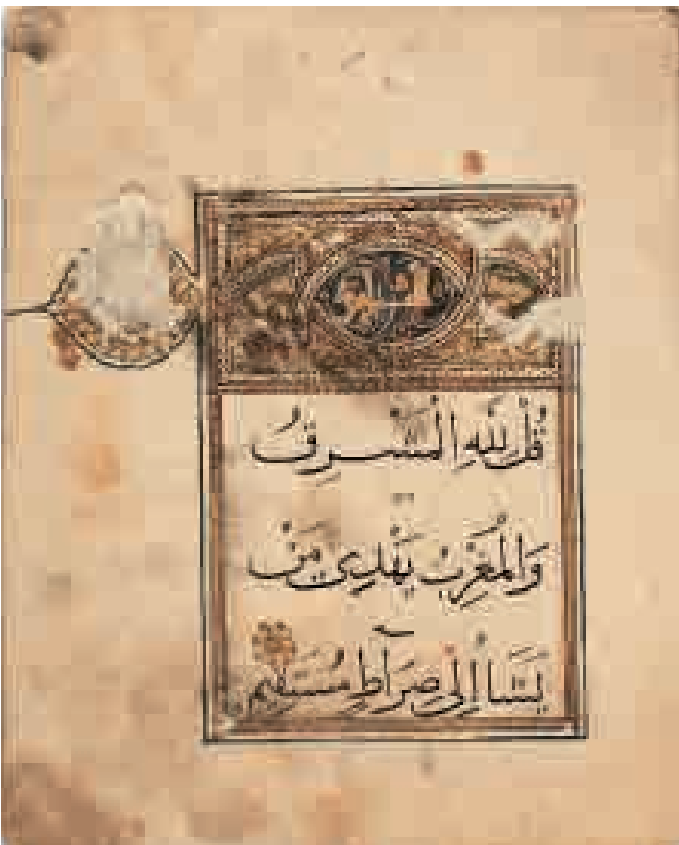 قُلْ لِلَّهِ الْمَشْرِقُ
وَالْمَغْرِبُ يَهْدِي مَنْ
يَشَاءُ إِلَى صِرَاطٍ مُسْتَقِيمٍ